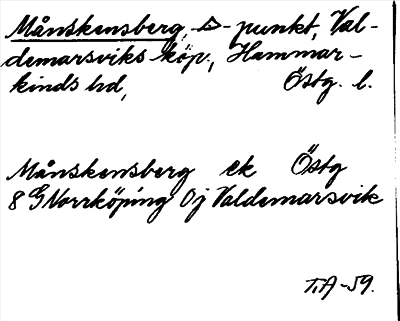 Månskensberg, △-punkt, Val-
demarsviks köp., Hammar-
kinds hd, Östg. l.
Månskensberg ek Östg
8 G Norrköping 0j Valdemarsvik
T.A-59.